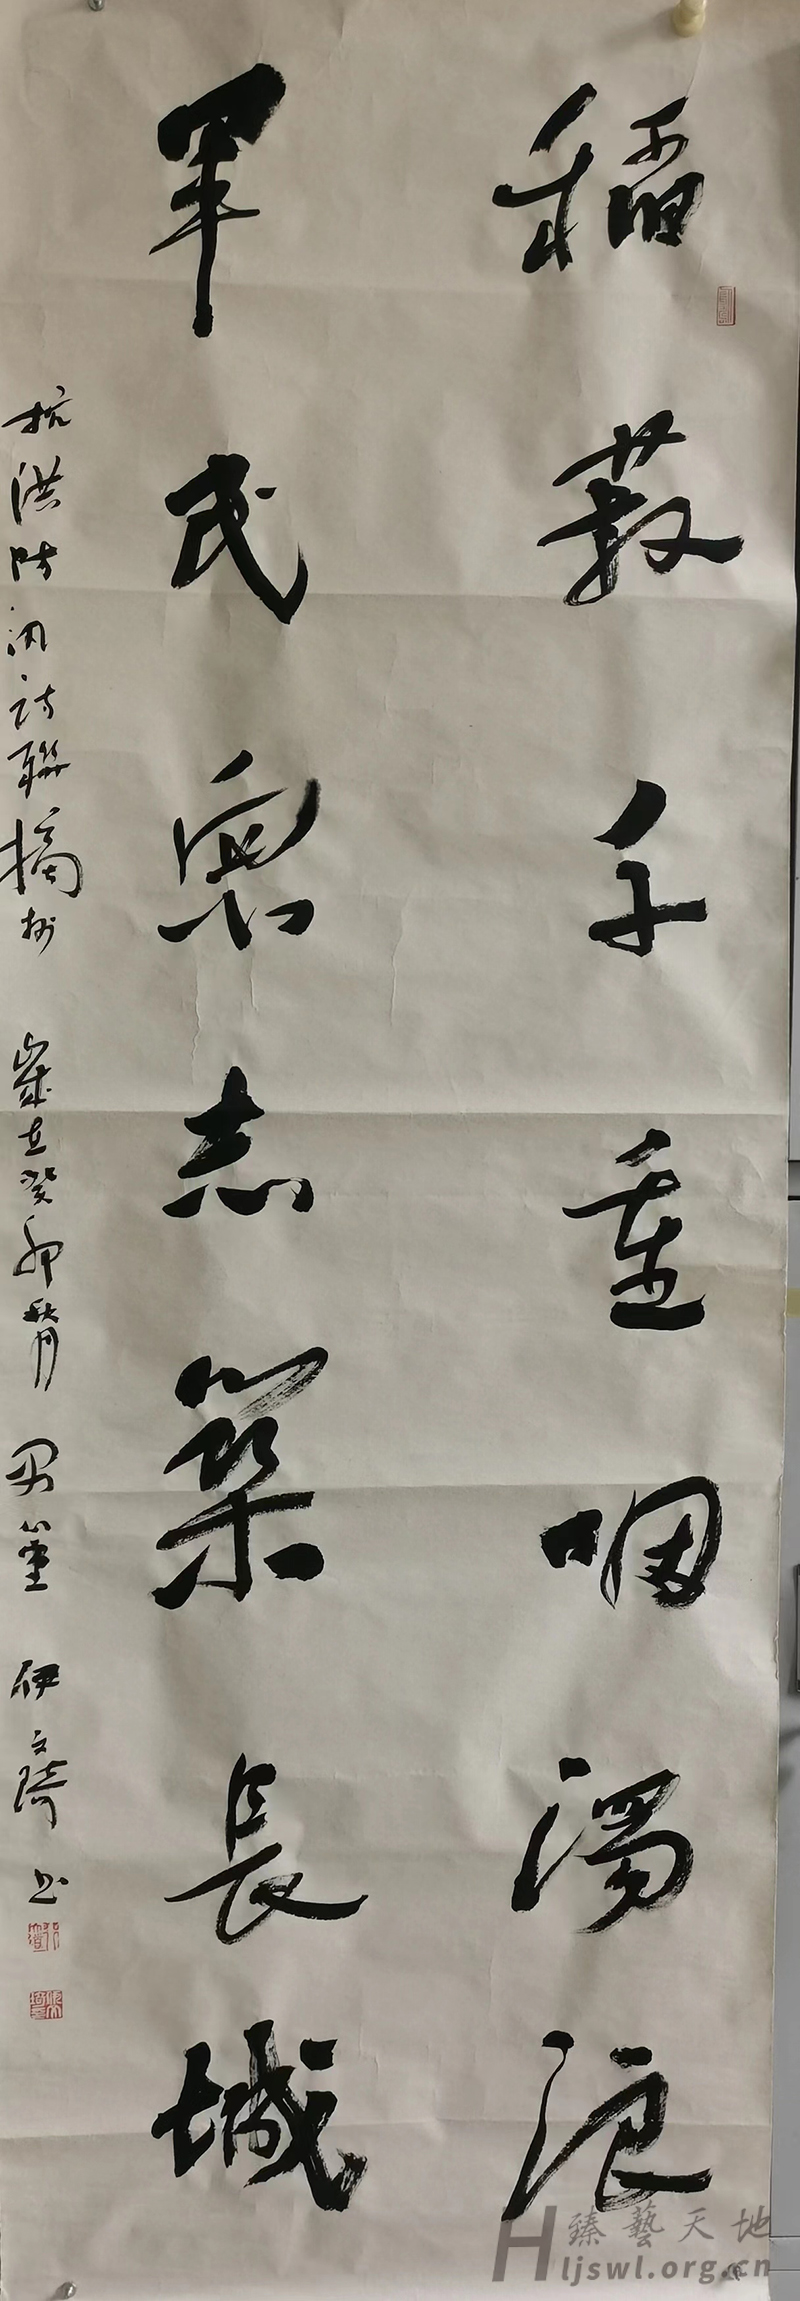 稻菽千重咽濁浪
軍民衆志築長城
抗洪防汛诗聯摘抄 歲在癸卯秋月 伊文琦书
臻藝天地
Hljswl.org.cn